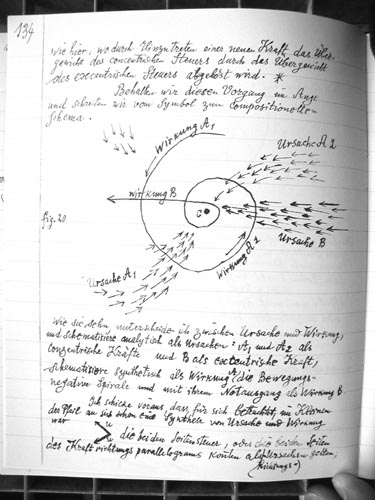 134
wie hier, wo durch Hinzutreten einer neuen Kraft das Über-
gewicht des concentrischen Steuers durch das Übergewicht
des excentrischen Steuers abgelöst wird. *
Behalten wir diesen Vorgang im Auge
und schreiten wir vom Symbol zum compositionellen
Schema.
Wirkung A1
Ursache A2
Wirkung B
fig. 20
C
Ursache B
Wirkung A2
Ursache A1
Wie Sie sehn unterscheide ich zwischen Ursache und Wirkung,
und schematisiere analytisch als Ursachen: A1 und A2 als
conzentrische Kräfte und B als excentrische Kraft,
schematisiere synthetisch als Wirkung A die Bewegungs-
negative Spirale und mit ihrem Notausgang als Wirkung B.
Ich schicke voraus, dass für sich betrachtet, im Kleinen
der Pfeil an sich schon eine Synthese von Ursache und Wirkung
war
die beiden Seitensteuer, oder die beiden Seiten
des Kraftrichtungsparallelograms würden als Ursachen gelten,